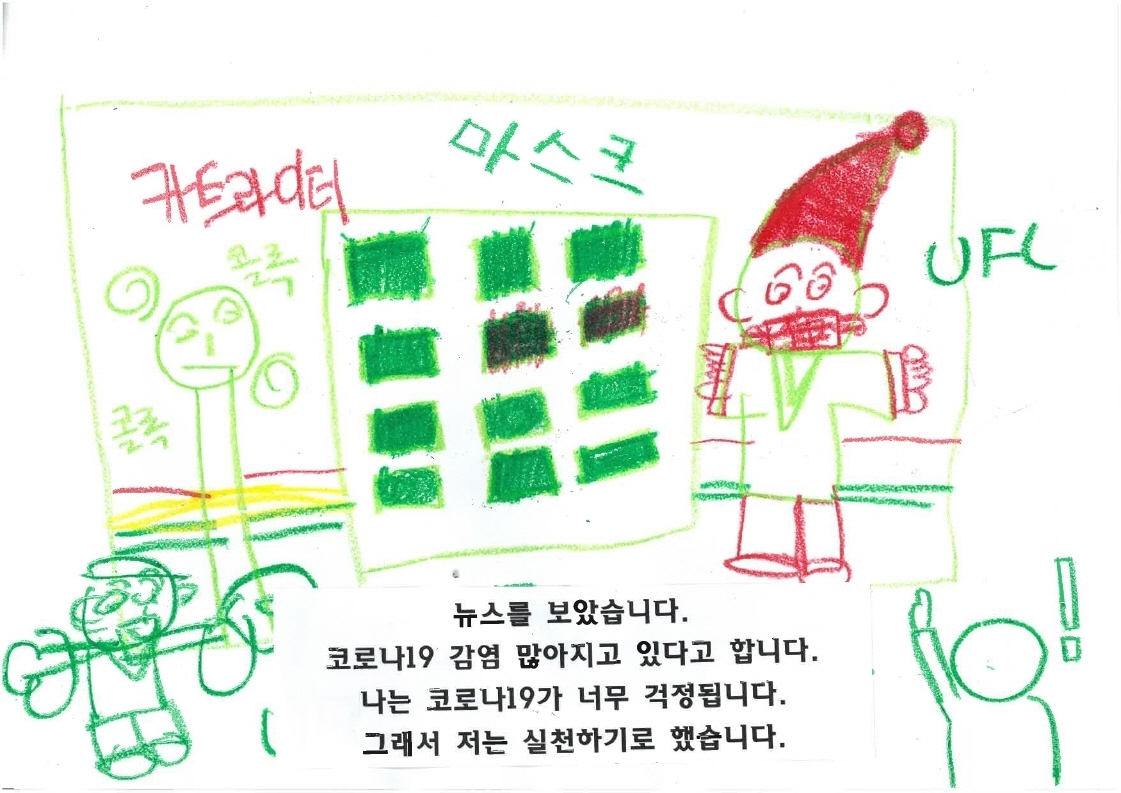 마스크
카트라이더
UFC
콜록
콜록
!
뉴스를 보았습니다.
코로나19 감염 많아지고 있다고 합니다.
나는 코로나19가 너무 걱정됩니다.
그래서 저는 실천하기로 했습니다.